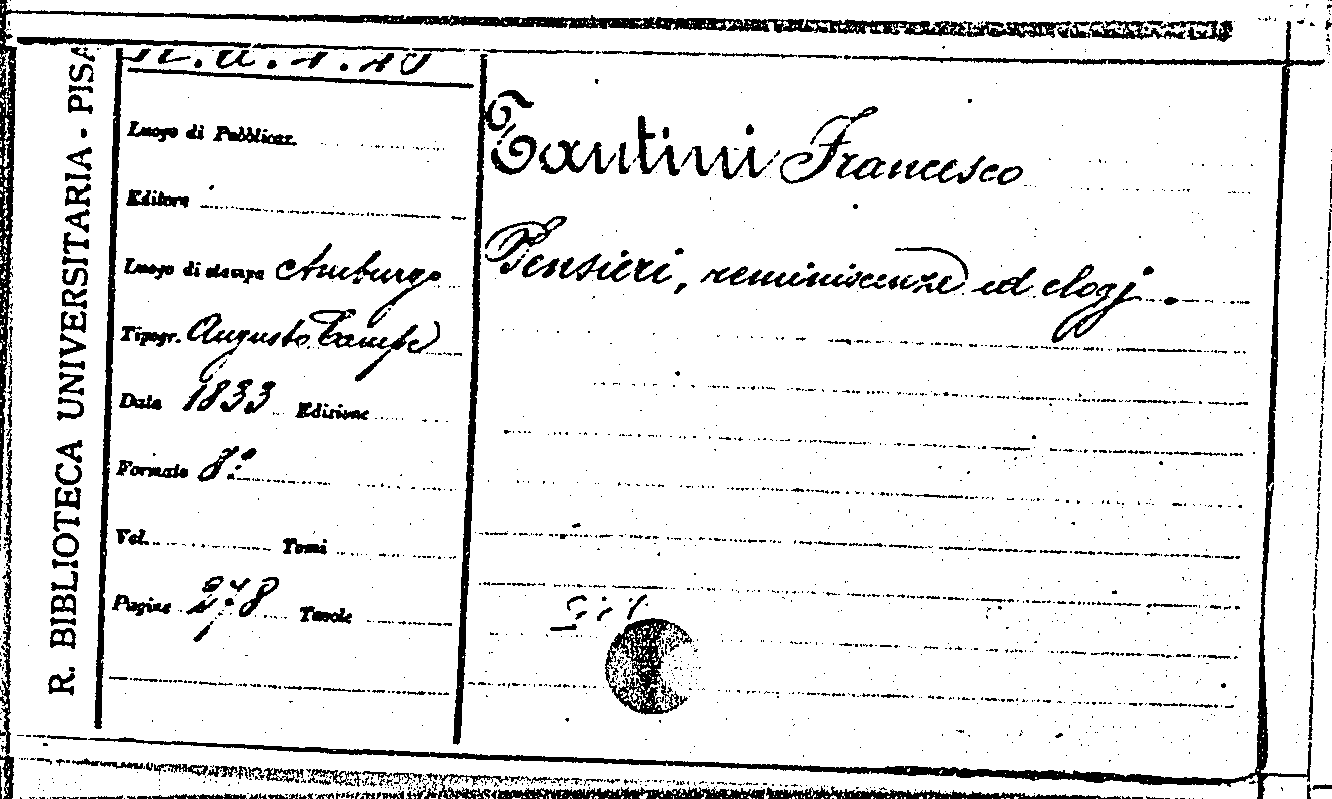 R. BIBLIOTECA UNIVERSITARIA - PISA
Luogo di Pubblicaz.
Editore
Luogo di stampa Amburgo
Tipogr. Augusto Campe
Data 1833 Edizione
Formato 8º
Vol. Tomi
Pagine 278 Tavole
Tantini Francesco
Pensieri, reminiscenze ed elogj.